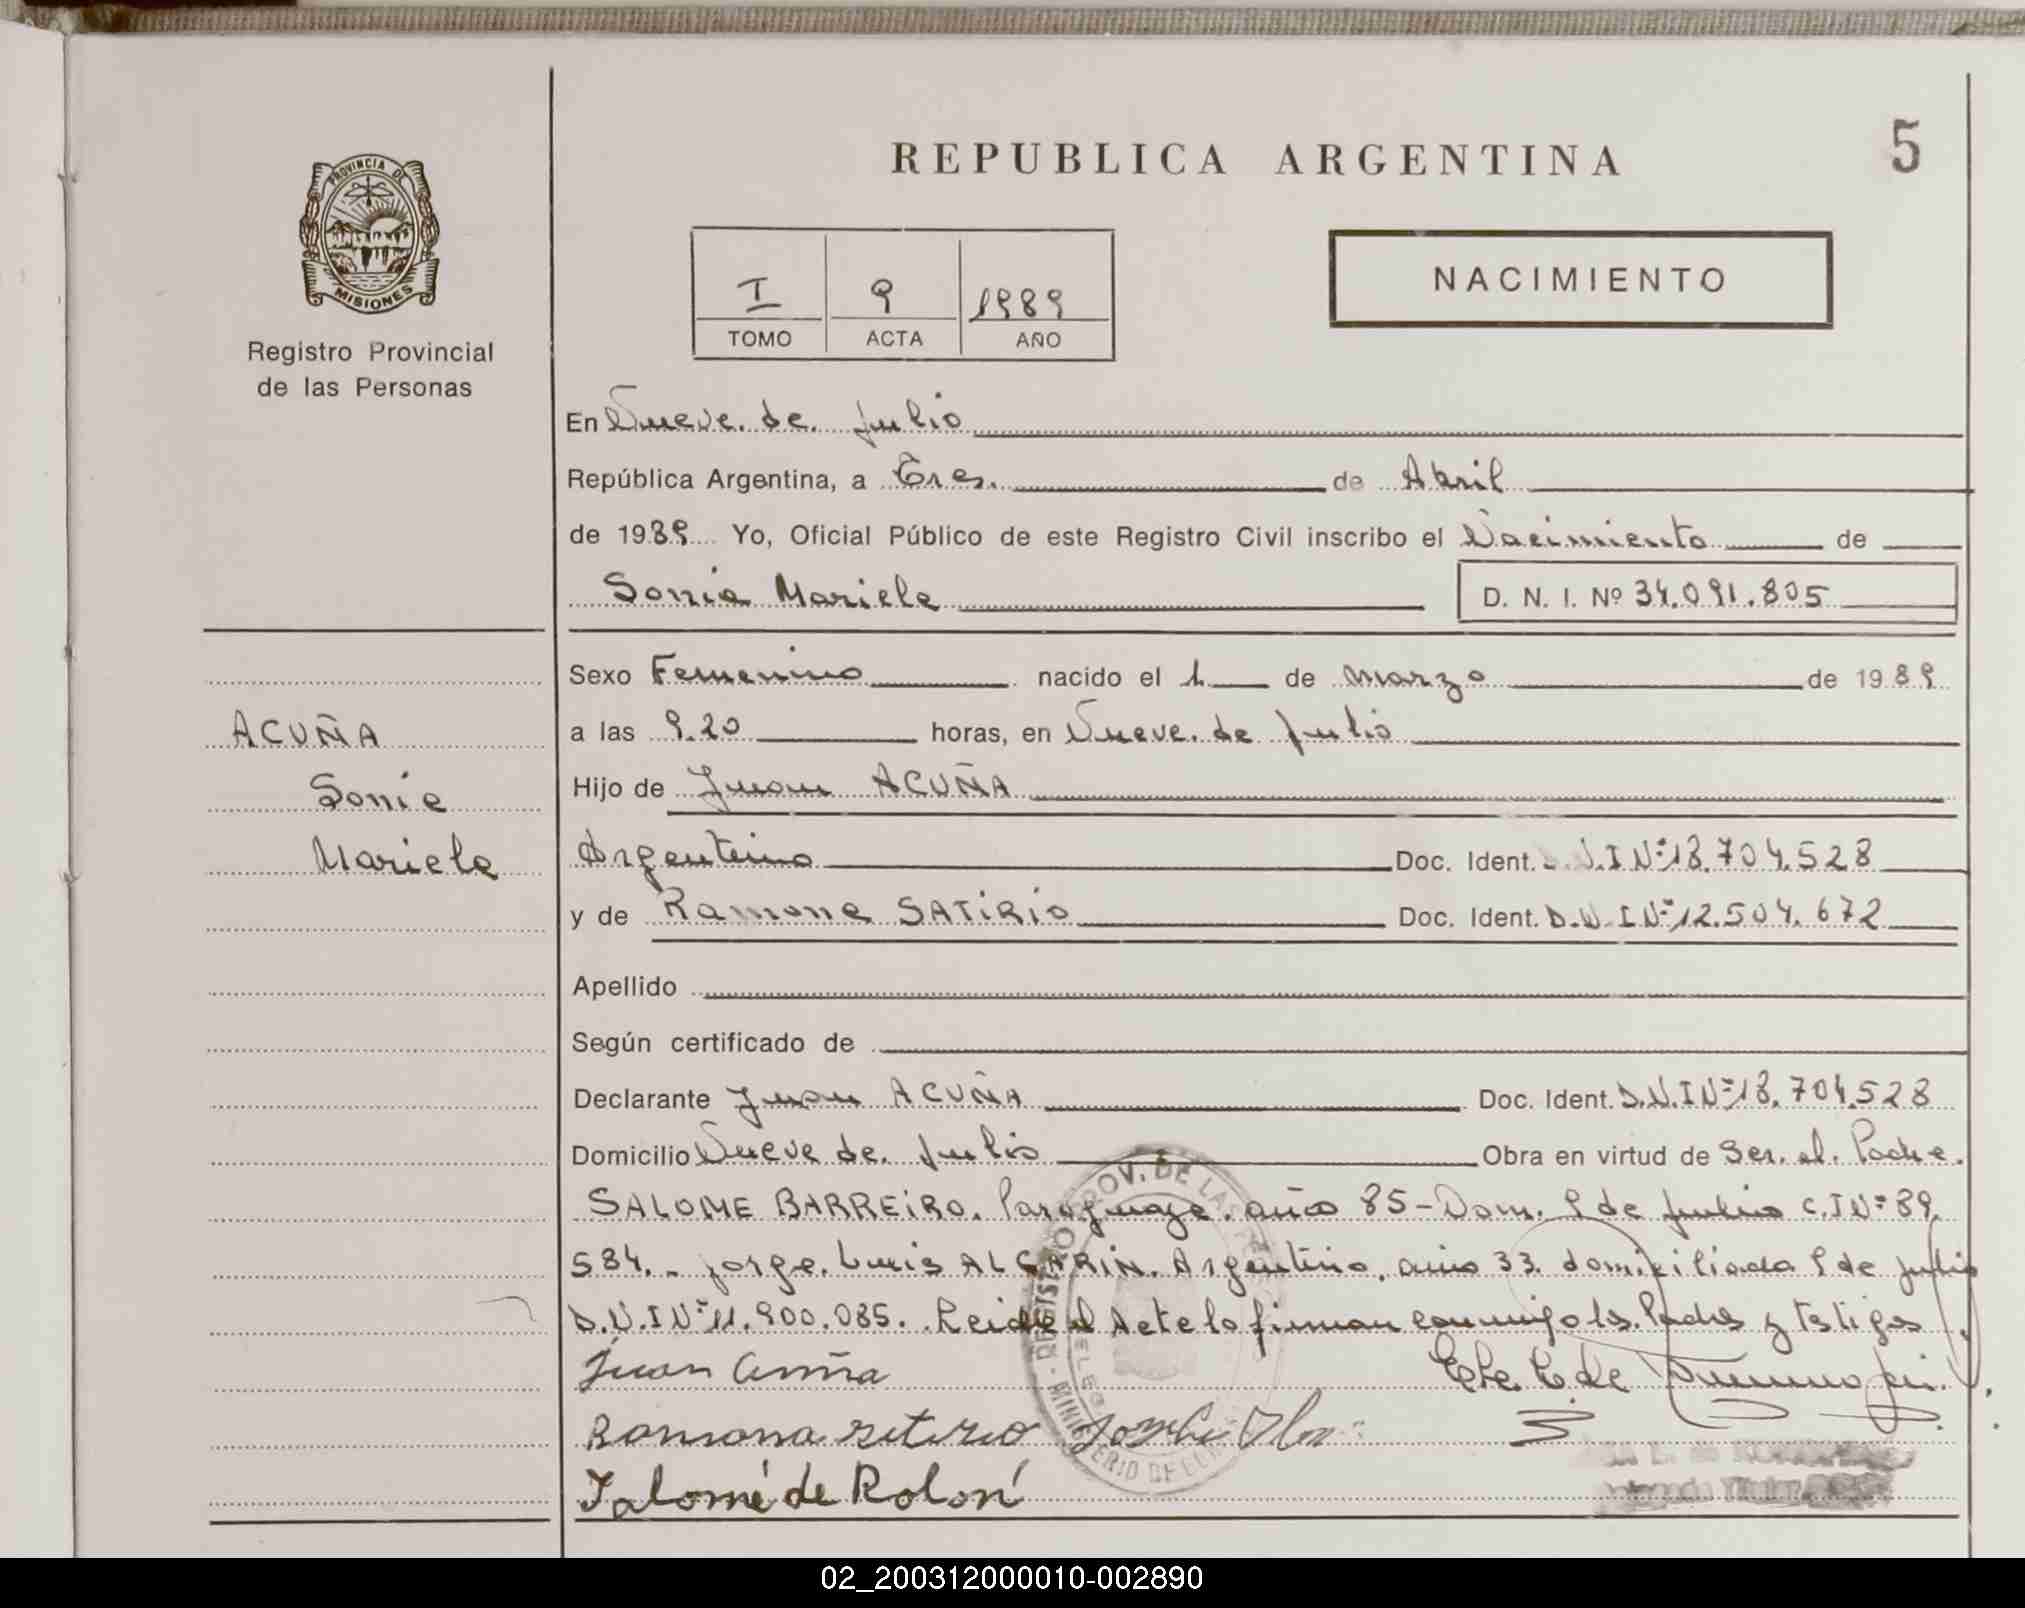 REPUBLICA ARGENTINA
5
PROVINCIA DE
MISIONES
Registro Provincial
de las Personas
I 9 1989
TOMO ACTA AÑO
NACIMIENTO
En Nueve de Julio
República Argentina, a Tres. de Abril
de 1989 Yo, Oficial Público de este Registro Civil inscribo el Nacimiento de
Sonia Mariela D. N. I. Nº 34.091.805
Sexo Femenino nacido el 1 de Marzo de 1989
ACUÑA
Sonia
Mariela
a las 9.20 horas, en Nueve de Julio
Hijo de Juan ACUÑA
Argentino Doc. Ident. D.N.I Nº 18.704.528
y de Ramona SATIRIO Doc. Ident. D.N.I Nº 12.504.672
Apellido
Según certificado de
Declarante Juan ACUÑA Doc. Ident. D.N.I Nº 18.704.528
Domicilio Nueve de Julio Obra en virtud de Ser el Padre.
SALOME BARREIRO. Paraguaya. años 85 - Dom. 9 de Julio C.I Nº 89.
584. - Jorge Luis ALCARIN. Argentino, años 33. domiciliado 9 de Julio
D.N.I Nº 11.900.085. Leida el Acta lo firman conmigo los Padres y testigos
Juan Acuña
Ramona
Salomé de Rolón
02_200312000010-002890